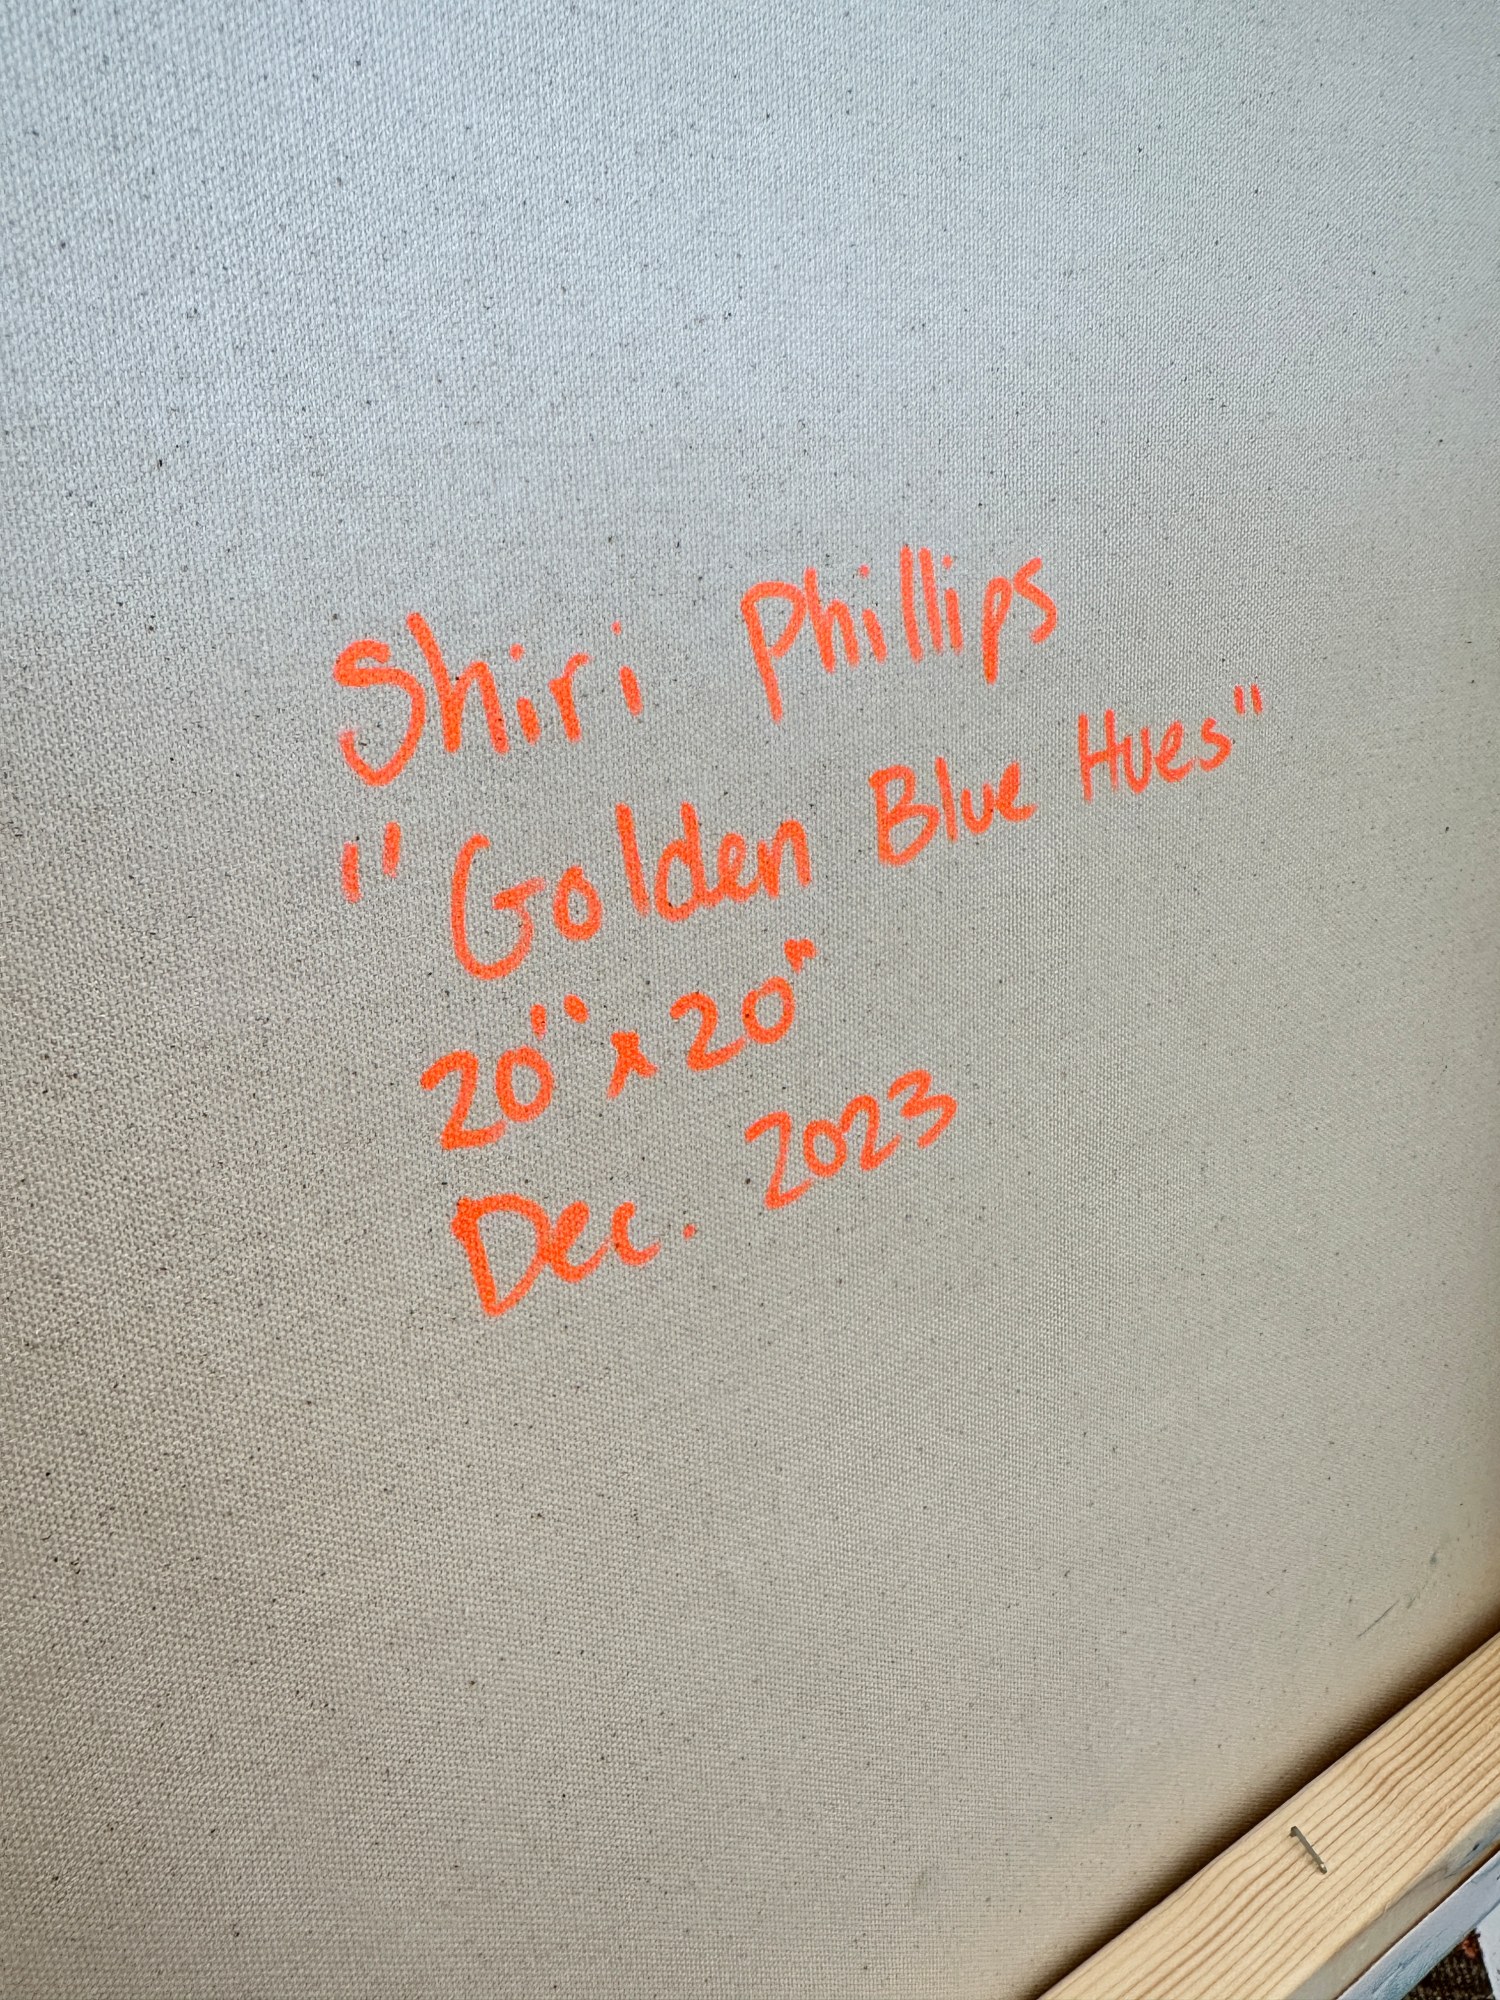 Shiri Phillips
"Golden Blue Hues"
20" x 20"
Dec. 2023